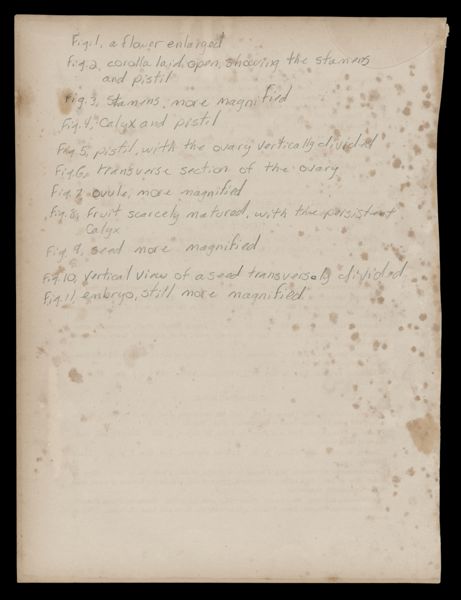 Fig.1, a flower enlarged
Fig.2, corolla laid open, showing the stamens
and pistil
Fig.3, stamens, more magnified
Fig.4, Calyx and pistil
Fig.5, pistil, with the ovary vertically divided
Fig.6, transverse section of the ovary
Fig.7, ovule, more magnified
Fig.8, Fruit scarcely matured, with the persistent
Calyx
Fig.9, seed more magnified
Fig.10, vertical view of a seed transversely divided
Fig.11, embryo, still more magnified